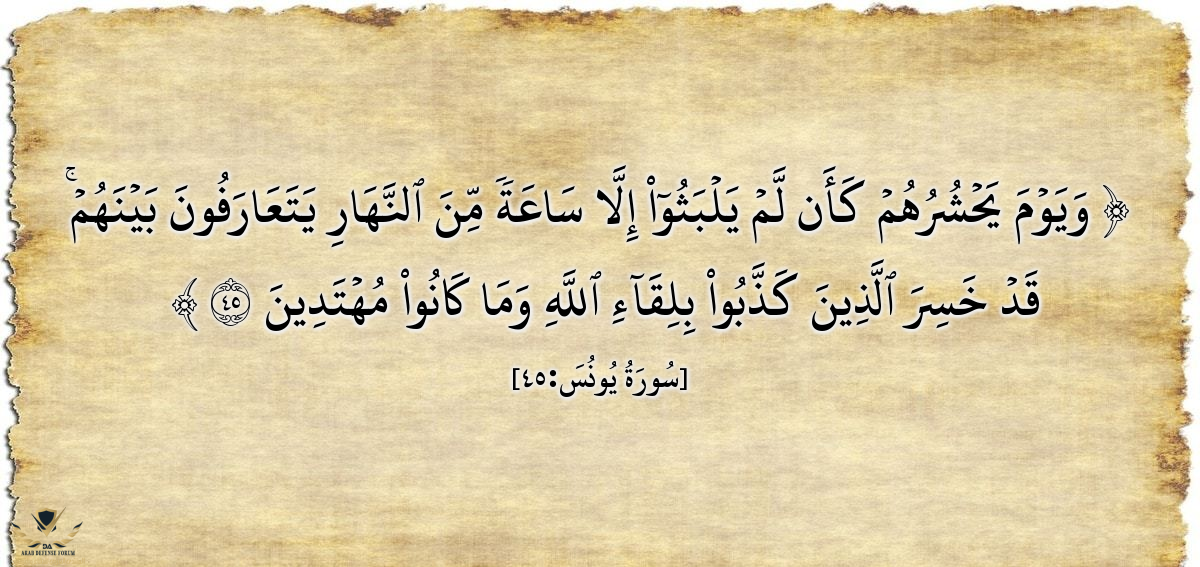 ﴿ وَيَوْمَ يَحْشُرُهُمْ كَأَن لَّمْ يَلْبَثُوٓا۟ إِلَّا سَاعَةً مِّنَ ٱلنَّهَارِ يَتَعَارَفُونَ بَيْنَهُمْ ۚ
قَدْ خَسِرَ ٱلَّذِينَ كَذَّبُوا۟ بِلِقَآءِ ٱللَّهِ وَمَا كَانُوا۟ مُهْتَدِينَ ۝٤٥ ﴾
[سُورَةُ يُونُسَ:٤٥]
DA
ARAB DEFENSE FORUM